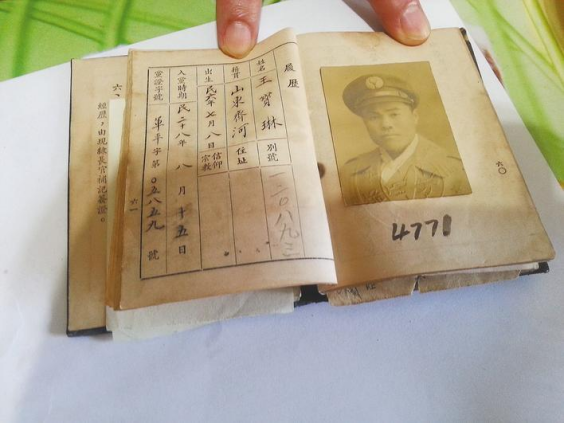 履歷
姓名 王寶琳 別號 一二〇八九三
籍貫 山東齊河 住址
出生 民六年七月八日 信仰宗教
入黨時期 民二十八年八月十五日
黨證字號 軍平字第〇五八五九號
六一
六、
短歷，由現級長官補記簽證。
六〇
4771